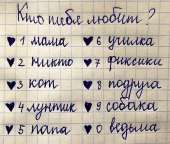 Кто тебя любит?
♥ 1 мама
♥ 2 никто
♥ 3 кот
♥ 4 лунтик
♥ 5 папа
♥ 6 училка
♥ 7 фиксики
♥ 8 подруга
♥ 9 собака
♥ 0 ведьма